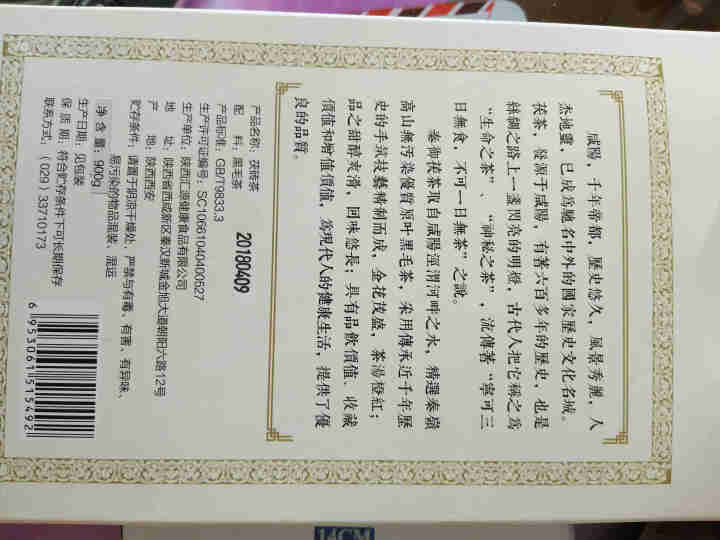 咸陽，千年帝都，歷史悠久，風景秀麗，人
杰地靈，已成為馳名中外的國家歷史文化名城。
茯茶，發源于咸陽，有著六百多年的歷史，也是
絲綢之路上一盞閃亮的明燈，古代人把它稱之為
“生命之茶”、“神秘之茶”，流傳著“寧可三
日無食，不可一日無茶”之說。
秦御茯茶取自咸陽涇渭河畔之水，精選秦嶺
高山無污染優質原叶黑毛茶，采用傳承近千年歷
史的手筑技藝精制而成，金花茂盛，茶湯橙紅；
品之甜醇爽滑，回味悠長；具有品飲價值、收藏
價值和增值價值，為現代人的健康生活，提供了優
良的品質。
产品名称：茯砖茶
配 料：黑毛茶
产品标准：GB/T9833.3
生产许可证编号：SC10661040400527
生产单位：陕西汇源健康食品有限公司
地 址：陕西省西咸新区秦汉新城金旭大道朝阳六路12号
产 地：陕西西安
贮存条件：请置于阴凉干燥处，严禁与有毒、有害、有异味、
易污染的物品混装、混运
净含量：900g
生产日期：见包装
保 质 期：符合贮存条件下可长期保存
联系方式：（029）33710173
20180409
6953061515492